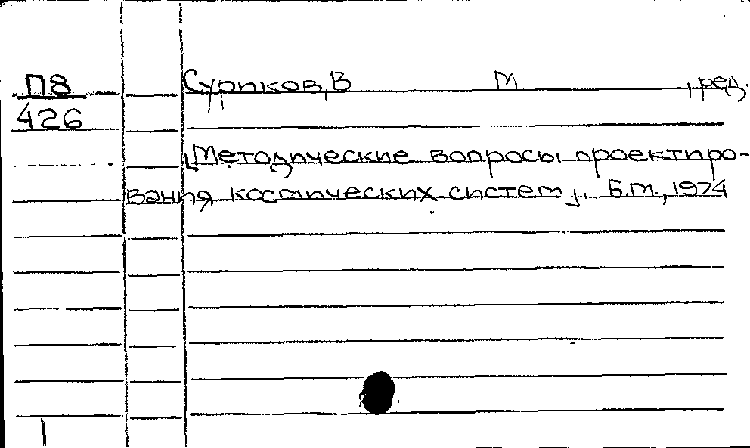 П8 Суриков, В М , ред.
426
[Методические вопросы проектиро-
вания космических систем]. Б.м., 1974